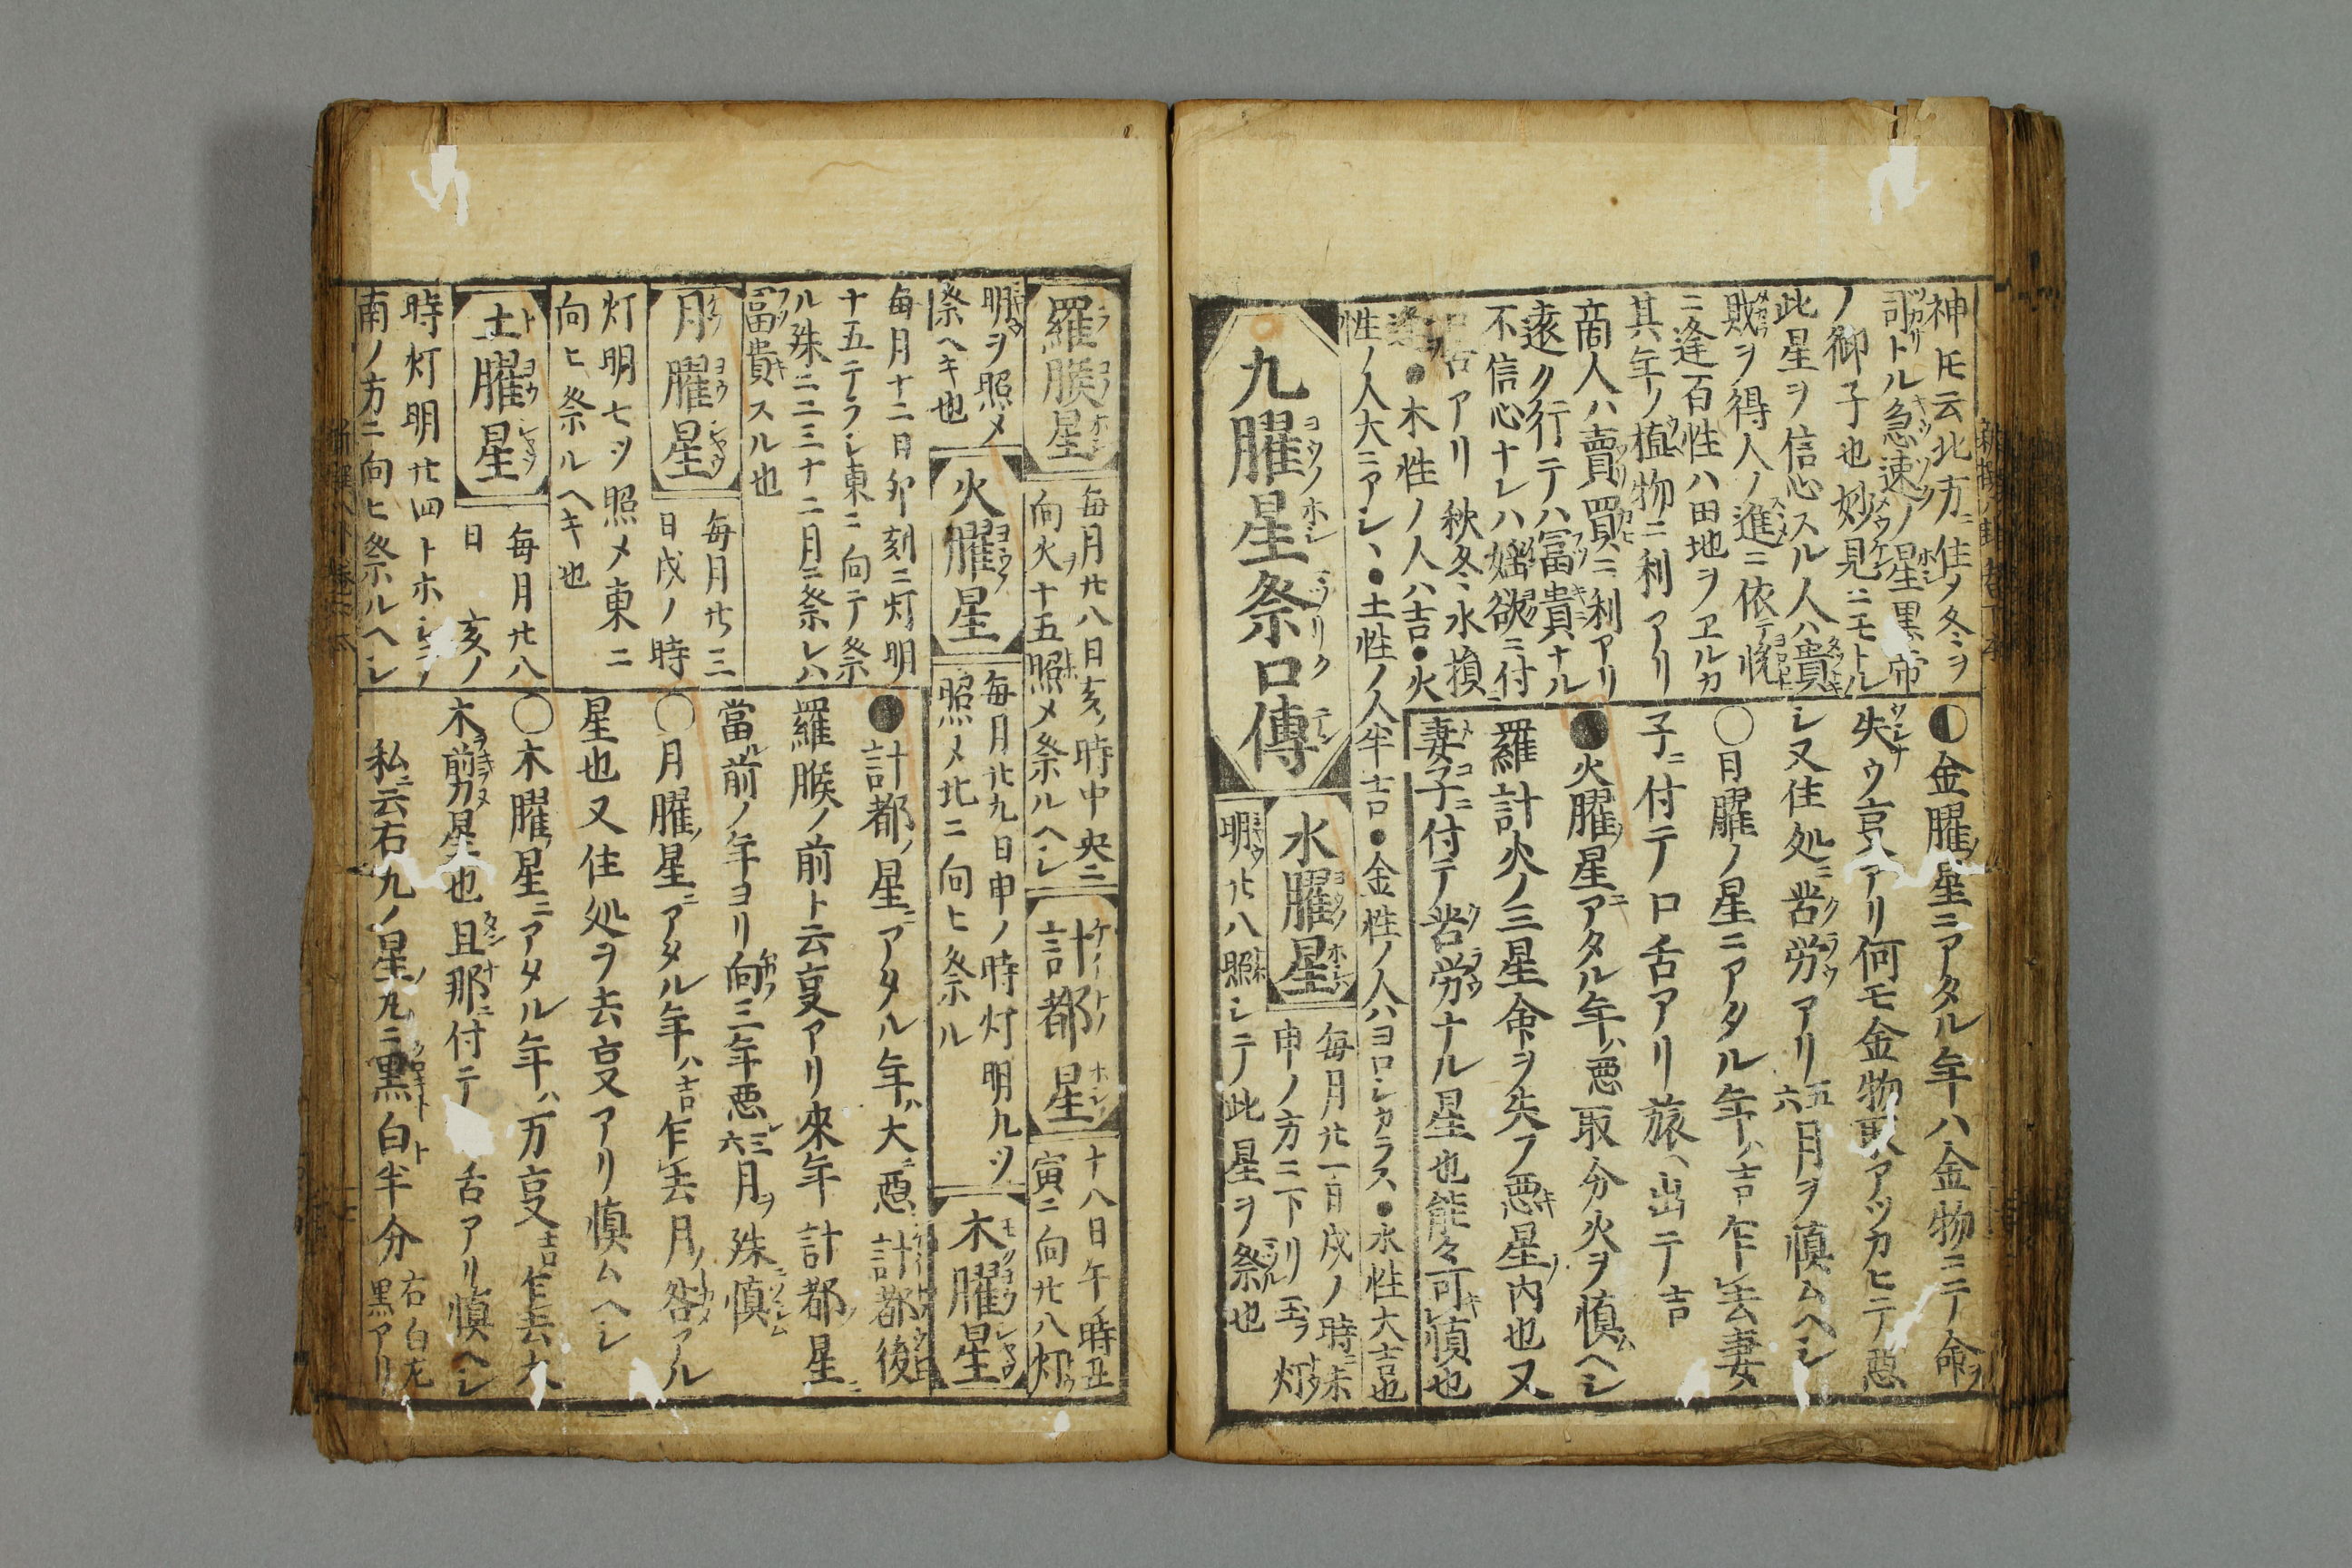 神𪜈云北方ニ住メ冬ヲ
司トル急速ノ星黒帝
ノ御子也妙見ニモトル
此星ヲ信心スル人ハ貴
敗ヲ得人ノ進ニ依テ悦
ニ逢百性ハ田地ヲヱルカ
其年ノ植物ニ利アリ
商人ハ賣買ニ利アリ
遠ク行テハ冨貴ナル
不信心ナレハ婬欲ニ付
口舌アリ秋冬水損
逢●木性ノ人ハ吉●火
性ノ人大ニアシヽ●土性ノ人半吉●金性ノ人ハヨロシカラス●水性大吉也
金曜星ニアタル年ハ金物ニテ命ヲ
失ウ㕝アリ何モ金物取アツカヒテ悪
シ又住処ニ苦労アリ五六月ヲ慎ムヘシ
〇日曜ノ星ニアタル年ハ吉乍去妻
子ニ付テ口舌アリ旅ヘ出テ吉
●火曜星ニアタル年ハ悪取分火ヲ慎ムヘシ
羅計火ノ三星命ヲ失フ悪星ノ内也又
妻子ニ付テ苦労ナル星也能々可慎也
九曜星祭口傳
水曜星
毎月廿一日戌ノ時ニ未
申ノ方ニ下リ玉フ灯
明廿八照シテ此星ヲ祭也
羅睺星
毎月廿八日亥ノ時中央ニ
向火十五照メ祭ルヘシ
計都星
十八日午ノ時丑
寅ニ向廿八灯
明ヲ照メ
祭ヘキ也
火曜星
毎月廿九日申ノ時灯明九ツ
照メ北ニ向ヒ祭ル
木曜星
毎月十二日卯ノ刻ニ灯明
十五テラシ東ニ向テ祭
ル殊ニ二三十二月ニ祭レハ
冨貴スル也
月曜星
毎月廿三
日戌ノ時
灯明七ツ照メ東ニ
向ヒ祭ルヘキ也
土曜星
毎月廿八
日亥ノ
時灯明廿四トホシテ
南ノ方ニ向ヒ祭ルヘシ
●計都ノ星ニアタル年ハ大ニ悪計都後
羅睺ノ前ト云㕝アリ來年計都ノ星ニ
當ル前ノ年ヨリ向三年悪シ三六月ヲ殊慎
〇月曜ノ星ニアタル年ハ吉乍去月ノ咎アル
星也又住処ヲ去㕝アリ慎ムヘシ
〇木曜ノ星ニアタル年ハ万㕝吉乍去大
木剪星也且那ニ付テ舌アリ慎ヘシ
私ニ云右九ノ星ノ九ニ黒白ト半分右白左黒アリ